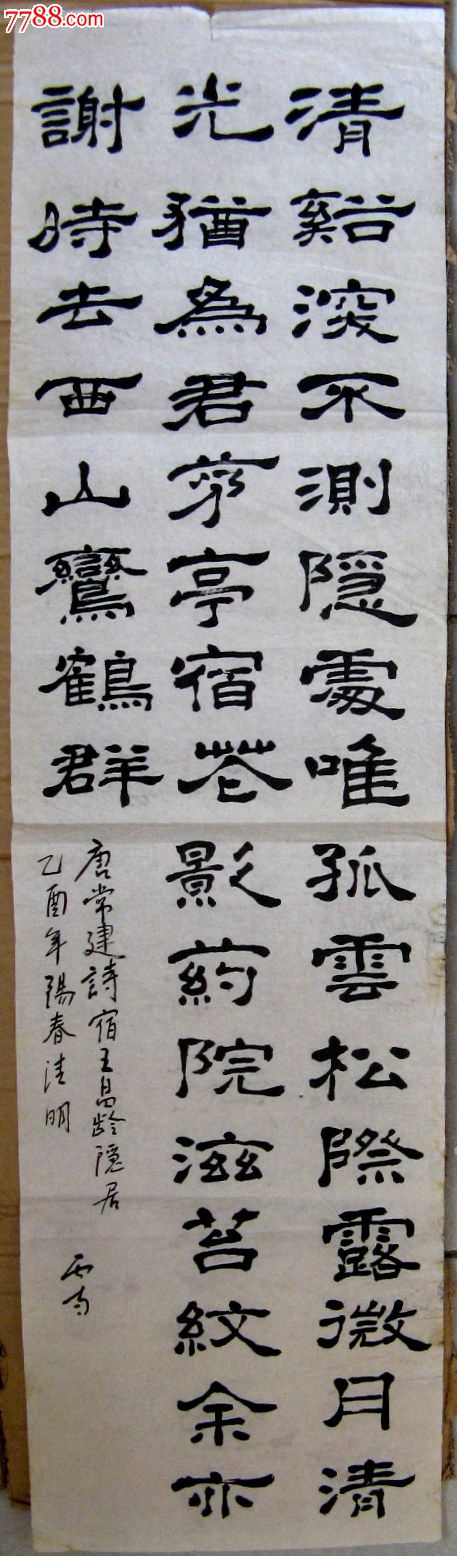 7788.com
清谿深不測隐處唯孤雲松際露微月清
光猶為君茅亭宿花影葯院滋苔紋余亦
謝時去西山鸞鶴群
唐常建詩宿王昌龄隐居
乙酉年陽春清明